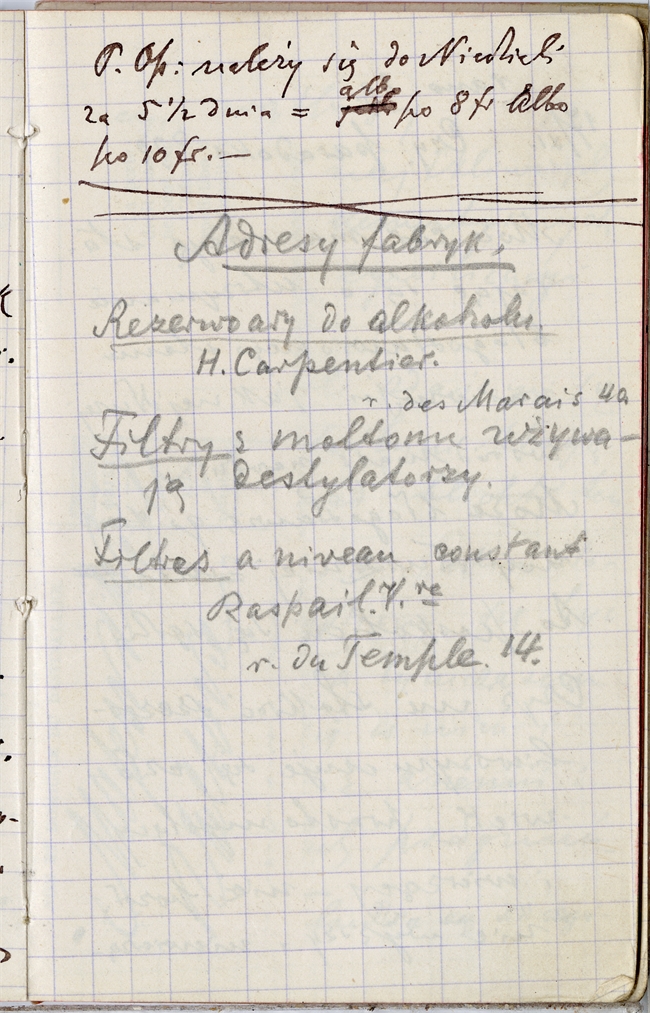 P. Op: należy się do Niedzieli
za 5 1/2 dnia = albo po 8 fr albo
po 10 fr. —
Adresy fabryk.
Rezerwoary do alkoholu.
H. Carpentier.
r. des Marais 4a
Filtry z moltonu używa-
ją destylatorzy.
Filtres a niveau constant
Raspail. V.re
r. du Temple. 14.